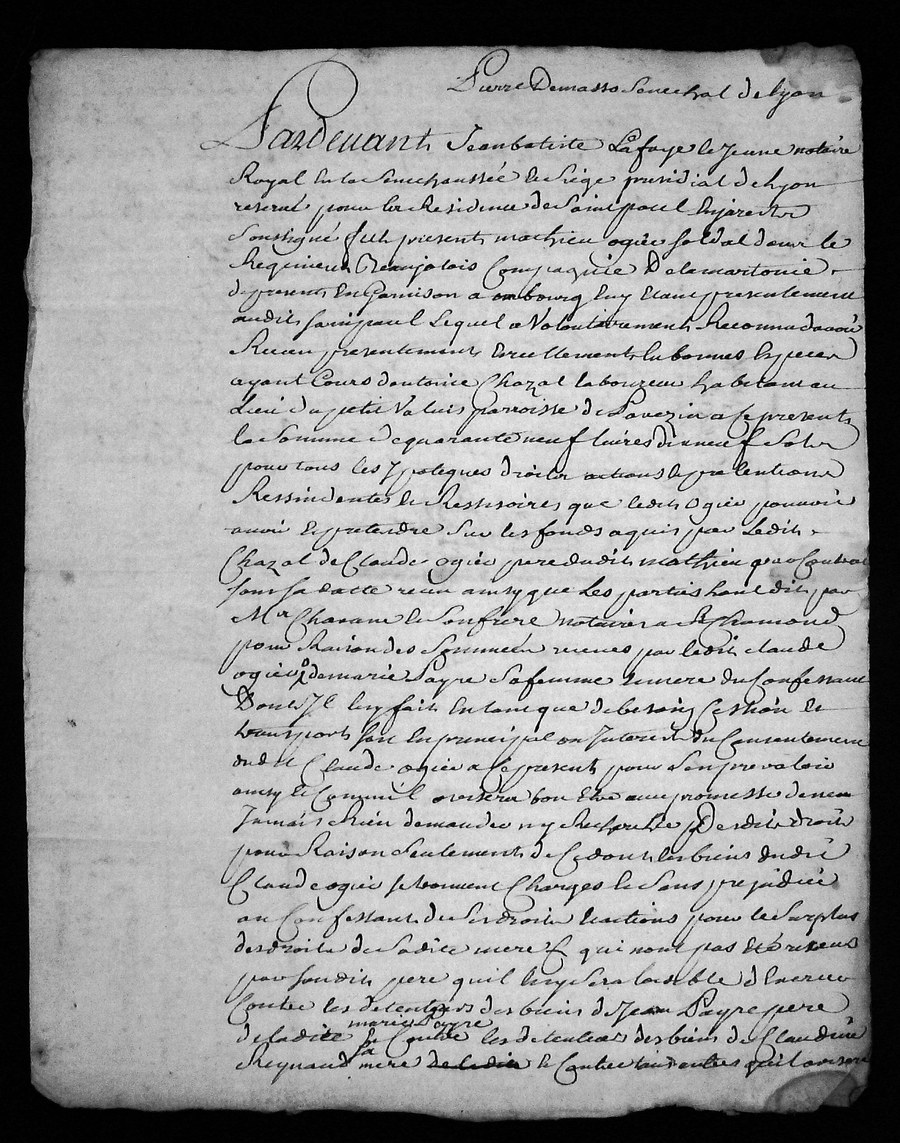 Pierre Demasso Senechal de lyon
Pardevant Jeanbatiste Lafaye le Jeune notaire
Royal En la Senechaussée Et Siége presidial de lyon
reservé pour la Residence de Saint paul En jarest
Soussigné fut present mathieu ogier soldat dans le
Regiment Beaujolois Compagnie Delamartonie
de present En Garnison a Etant presentement
audit saint paul Lequel a Volontairement Reconnu davoir
Receu presentement Et reellement En bonnes Especes
ayant Cours dantoine Chazal laboureur habitant au
Lieu du petit Valuis parroisse de Pavezin a Ce present
la Somme de quarante neuf livres dix neuf Sols
pour tous les ypoteques droits actions Et pretentions
Ressindentes Et Ressisoires que ledit Ogier pouvoit
avoir Et pretendre Sur les fonds aquis par Ledit
Chazal de Claude ogier pere dudit mathieu par Contrat
sous sa datte receu ainsy que les parties l'ont dit par
Mr Chavane Et Son frere notaires a St Chamond
pour Raison des Sommes receues par ledit claude
ogier de marie Payre Sa femme Et mere du Confessant
Dont Il luy fait En tant que de besoing Cession Et
transport soit En principal ou Interest du Consentement
dudit Claude ogier a Ce present pour Sen prevaloir
ainsy Et Comme Il avisera bon Etre avec promesse de nen
Jamais Rien demander ny Recherche Desdits droits
pour Raison Seulement de Ce dont les biens dudit
Claude ogier se trouvent Charges Et Sans prejudice
au Confessant de Ses droits Et actions pour le Surplus
des droits de Sadite mere & qui nont pas Eté receus
par Sondit pere quil luy Sera loisible d'Exercer
Contre les detenteurs des biens de Jean Payre pere
de ladite marie Payre Et Contre les detenteurs des biens de Claudine
Reynaud sa mere Et Contre tous autres quil avisera